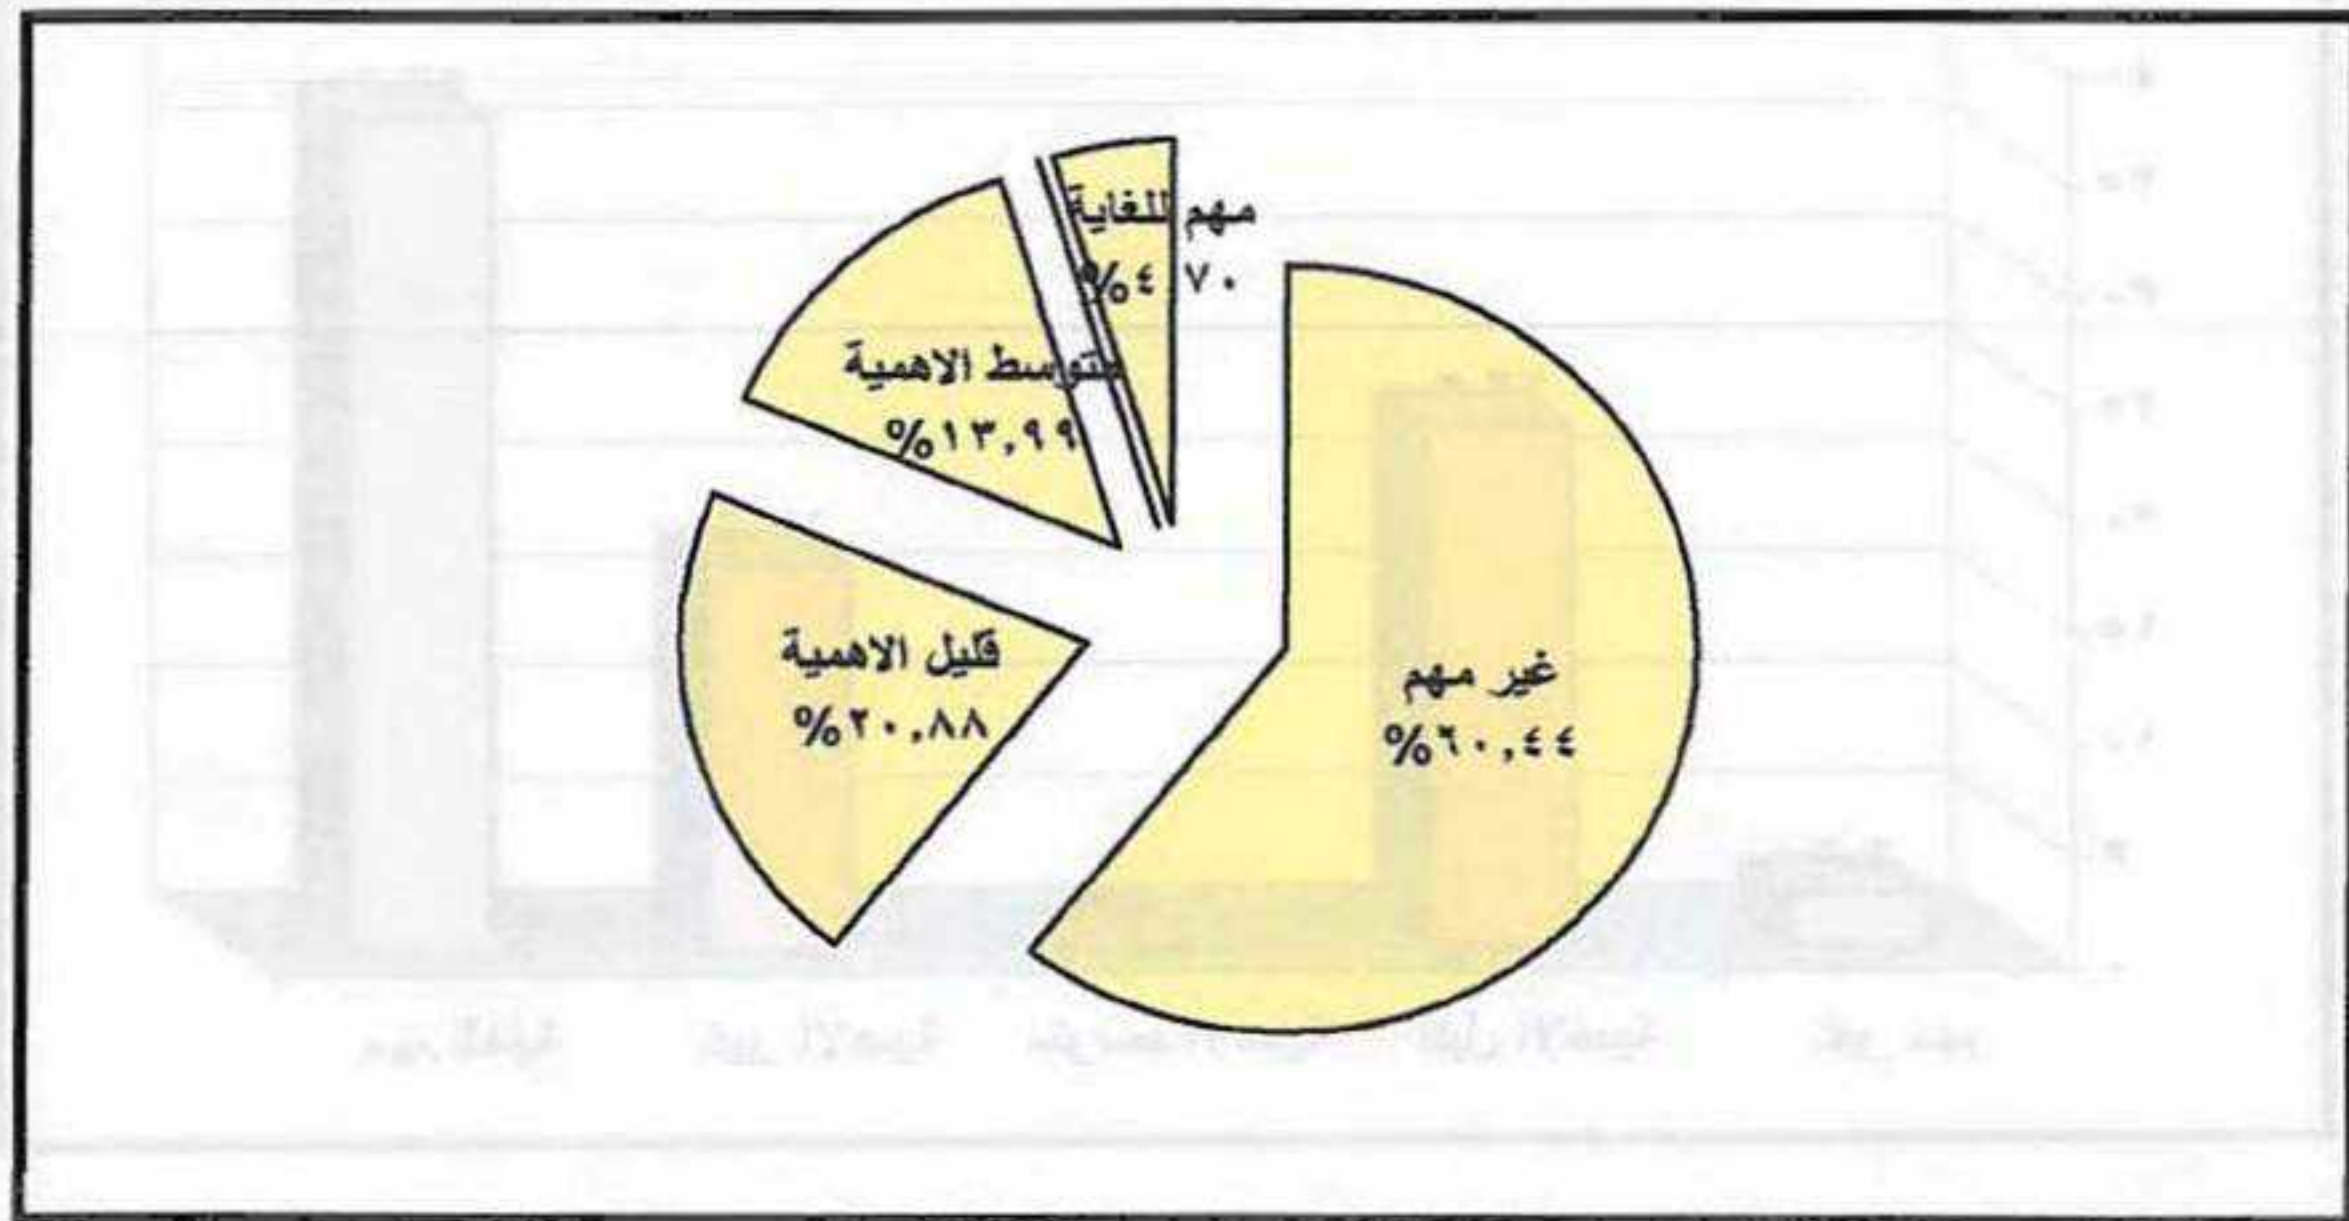 مهم للغاية
%٤,٧٠
متوسط الاهمية
%١٣,٩٩
قليل الاهمية
%٢٠,٨٨
غير مهم
%٦٠,٤٤